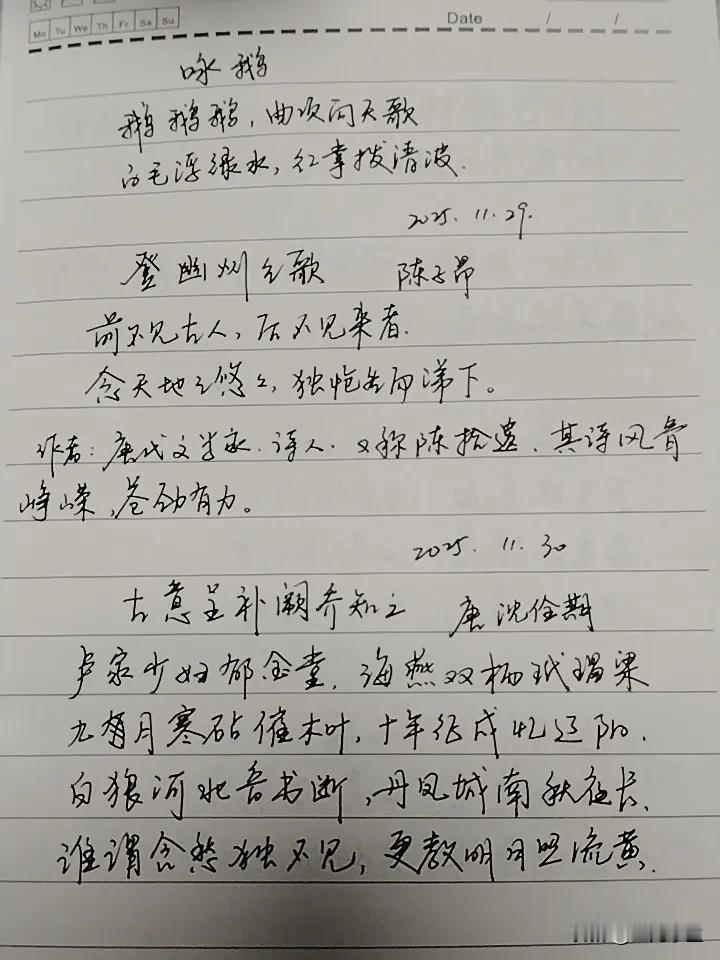 Mo Tu We Th Fr Sa Su
Date / /
咏鹅
鹅鹅鹅，曲项向天歌
白毛浮绿水，红掌拨清波.
2025. 11. 29.
登幽州台歌 陈子昂
前不见古人，后不见来者.
念天地之悠々，独怆然而涕下。
作者：唐代文学家.诗人.又称陈拾遗、其诗风骨
峥嵘，苍劲有力。
2025. 11. 30
古意呈补阙乔知之 唐 沈佺期
卢家少妇郁金堂，海燕双栖玳瑁梁
九月寒砧催木叶，十年征戍忆辽阳.
白狼河北音书断，丹凤城南秋夜长.
谁谓含愁独不见，更教明月照流黄.